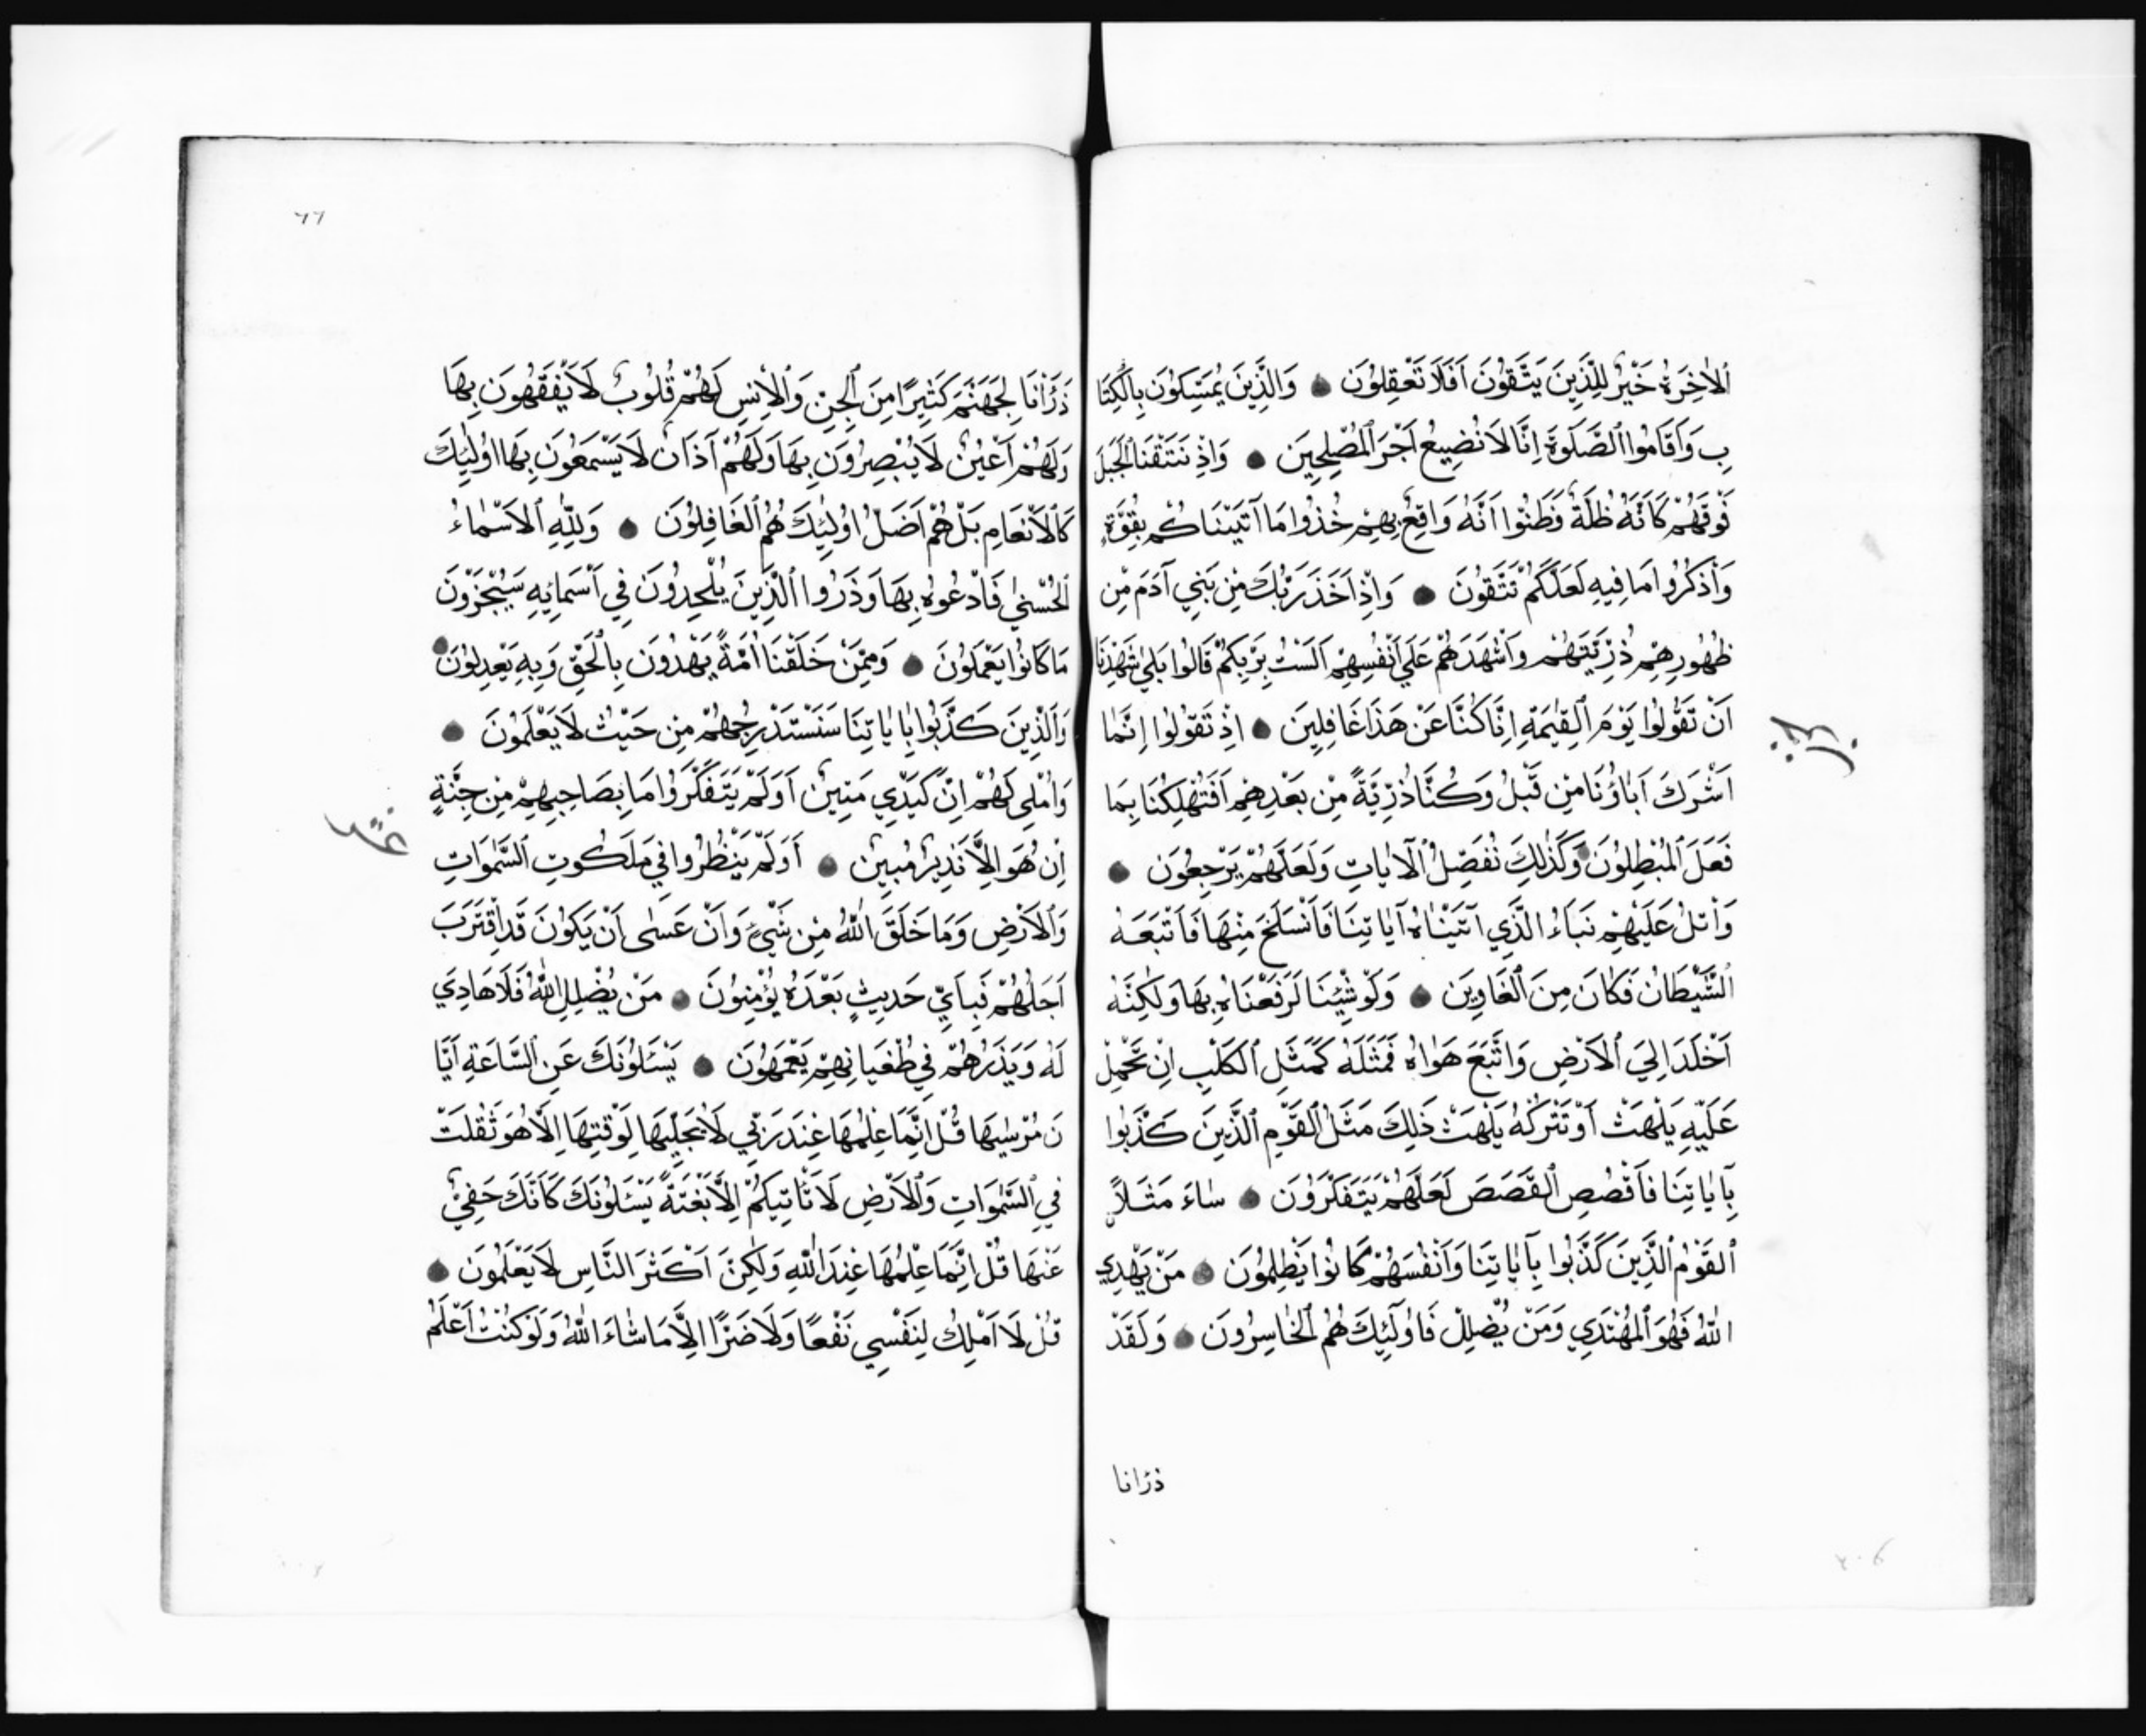 اَلْاٰخِرَةُ خَيْرٌ لِلَّذِينَ يَتَّقُونَ اَفَلَا تَعْقِلُونَ وَالَّذِينَ يُمَسِّكُونَ بِالْكِتَا
بِ وَاَقَامُوا الصَّلٰوةَ اِنَّا لَا نُضِيعُ اَجْرَ الْمُصْلِحِينَ وَاِذْ نَتَقْنَا الْجَبَلَ
فَوْقَهُمْ كَاَنَّهُ ظُلَّةٌ وَظَنُّوا اَنَّهُ وَاقِعٌ بِهِمْ خُذُوا مَا آتَيْنَاكُمْ بِقُوَّةٍ
وَاذْكُرُوا مَا فِيهِ لَعَلَّكُمْ تَتَّقُونَ وَاِذْ اَخَذَ رَبُّكَ مِنْ بَنِي آدَمَ مِنْ
ظُهُورِهِمْ ذُرِّيَّتَهُمْ وَاَشْهَدَهُمْ عَلَى اَنْفُسِهِمْ اَلَسْتُ بِرَبِّكُمْ قَالُوا بَلٰى شَهِدْنَا
اَنْ تَقُولُوا يَوْمَ الْقِيٰمَةِ اِنَّا كُنَّا عَنْ هَذَا غَافِلِينَ اِذْ تَقُولُوا اِنَّمَا
اَشْرَكَ اٰبَاؤُنَا مِنْ قَبْلُ وَكُنَّا ذُرِّيَّةً مِنْ بَعْدِهِمْ اَفَتُهْلِكُنَا بِمَا
فَعَلَ الْمُبْطِلُونَ وَكَذٰلِكَ نُفَصِّلُ الْاٰيَاتِ وَلَعَلَّهُمْ يَرْجِعُونَ
وَاتْلُ عَلَيْهِمْ نَبَاَءَ الَّذِي آتَيْنَاهُ آيَاتِنَا فَانْسَلَخَ مِنْهَا فَاَتْبَعَهُ
الشَّيْطَانُ فَكَانَ مِنَ الْغَاوِينَ وَلَوْ شِئْنَا لَرَفَعْنَاهُ بِهَا وَلٰكِنَّهُ
اَخْلَدَ اِلَى الْاَرْضِ وَاتَّبَعَ هَوٰاهُ فَمَثَلُهُ كَمَثَلِ الْكَلْبِ اِنْ تَحْمِلْ
عَلَيْهِ يَلْهَثْ اَوْ تَتْرُكْهُ يَلْهَثْ ذَلِكَ مَثَلُ الْقَوْمِ الَّذِينَ كَذَّبُوا
بِآيَاتِنَا فَاقْصُصِ الْقَصَصَ لَعَلَّهُمْ يَتَفَكَّرُونَ سَاءَ مَثَلًا
اَلْقَوْمُ الَّذِينَ كَذَّبُوا بِآيَاتِنَا وَاَنْفُسَهُمْ كَانُوا يَظْلِمُونَ مَنْ يَهْدِي
اللّٰهُ فَهُوَ الْمُهْتَدِي وَمَنْ يُضْلِلْ فَاُولٰئِكَ هُمُ الْخَاسِرُونَ وَلَقَدْ
ذرانا
٦٦
ذَرَاْنَا لِجَهَنَّمَ كَثِيرًا مِنَ الْجِنِّ وَالْاِنْسِ لَهُمْ قُلُوبٌ لَا يَفْقَهُونَ بِهَا
وَلَهُمْ اَعْيُنٌ لَا يُبْصِرُونَ بِهَا وَلَهُمْ آذَانٌ لَا يَسْمَعُونَ بِهَا اُولٰئِكَ
كَالْاَنْعَامِ بَلْ هُمْ اَضَلُّ اُولٰئِكَ هُمُ الْغَافِلُونَ وَلِلّٰهِ الْاَسْمَاءُ
الْحُسْنٰى فَادْعُوهُ بِهَا وَذَرُوا الَّذِينَ يُلْحِدُونَ فِي اَسْمَائِهِ سَيُجْزَوْنَ
مَا كَانُوا يَعْمَلُونَ وَمِمَّنْ خَلَقْنَا اُمَّةٌ يَهْدُونَ بِالْحَقِّ وَبِهِ يَعْدِلُونَ
وَالَّذِينَ كَذَّبُوا بِاٰيَاتِنَا سَنَسْتَدْرِجُهُمْ مِنْ حَيْثُ لَا يَعْلَمُونَ
وَاُمْلِي لَهُمْ اِنَّ كَيْدِي مَتِينٌ اَوَلَمْ يَتَفَكَّرُوا مَا بِصَاحِبِهِمْ مِنْ جِنَّةٍ
اِنْ هُوَ اِلَّا نَذِيرٌ مُبِينٌ اَوَلَمْ يَنْظُرُوا فِي مَلَكُوتِ السَّمٰوَاتِ
وَالْاَرْضِ وَمَا خَلَقَ اللّٰهُ مِنْ شَيْءٍ وَاَنْ عَسٰى اَنْ يَكُونَ قَدِ اقْتَرَبَ
اَجَلُهُمْ فَبِاَيِّ حَدِيثٍ بَعْدَهُ يُؤْمِنُونَ مَنْ يُضْلِلِ اللّٰهُ فَلَا هَادِيَ
لَهُ وَيَذَرُهُمْ فِي طُغْيَانِهِمْ يَعْمَهُونَ يَسْئَلُونَكَ عَنِ السَّاعَةِ اَيَّا
نَ مُرْسٰيهَا قُلْ اِنَّمَا عِلْمُهَا عِنْدَ رَبِّي لَا يُجَلِّيهَا لِوَقْتِهَا اِلَّا هُوَ ثَقُلَتْ
فِي السَّمٰوَاتِ وَالْاَرْضِ لَا تَاْتِيكُمْ اِلَّا بَغْتَةً يَسْئَلُونَكَ كَاَنَّكَ حَفِيٌّ
عَنْهَا قُلْ اِنَّمَا عِلْمُهَا عِنْدَ اللّٰهِ وَلٰكِنَّ اَكْثَرَ النَّاسِ لَا يَعْلَمُونَ
قُلْ لَا اَمْلِكُ لِنَفْسِي نَفْعًا وَلَا ضَرًّا اِلَّا مَا شَاءَ اللّٰهُ وَلَوْ كُنْتُ اَعْلَمُ